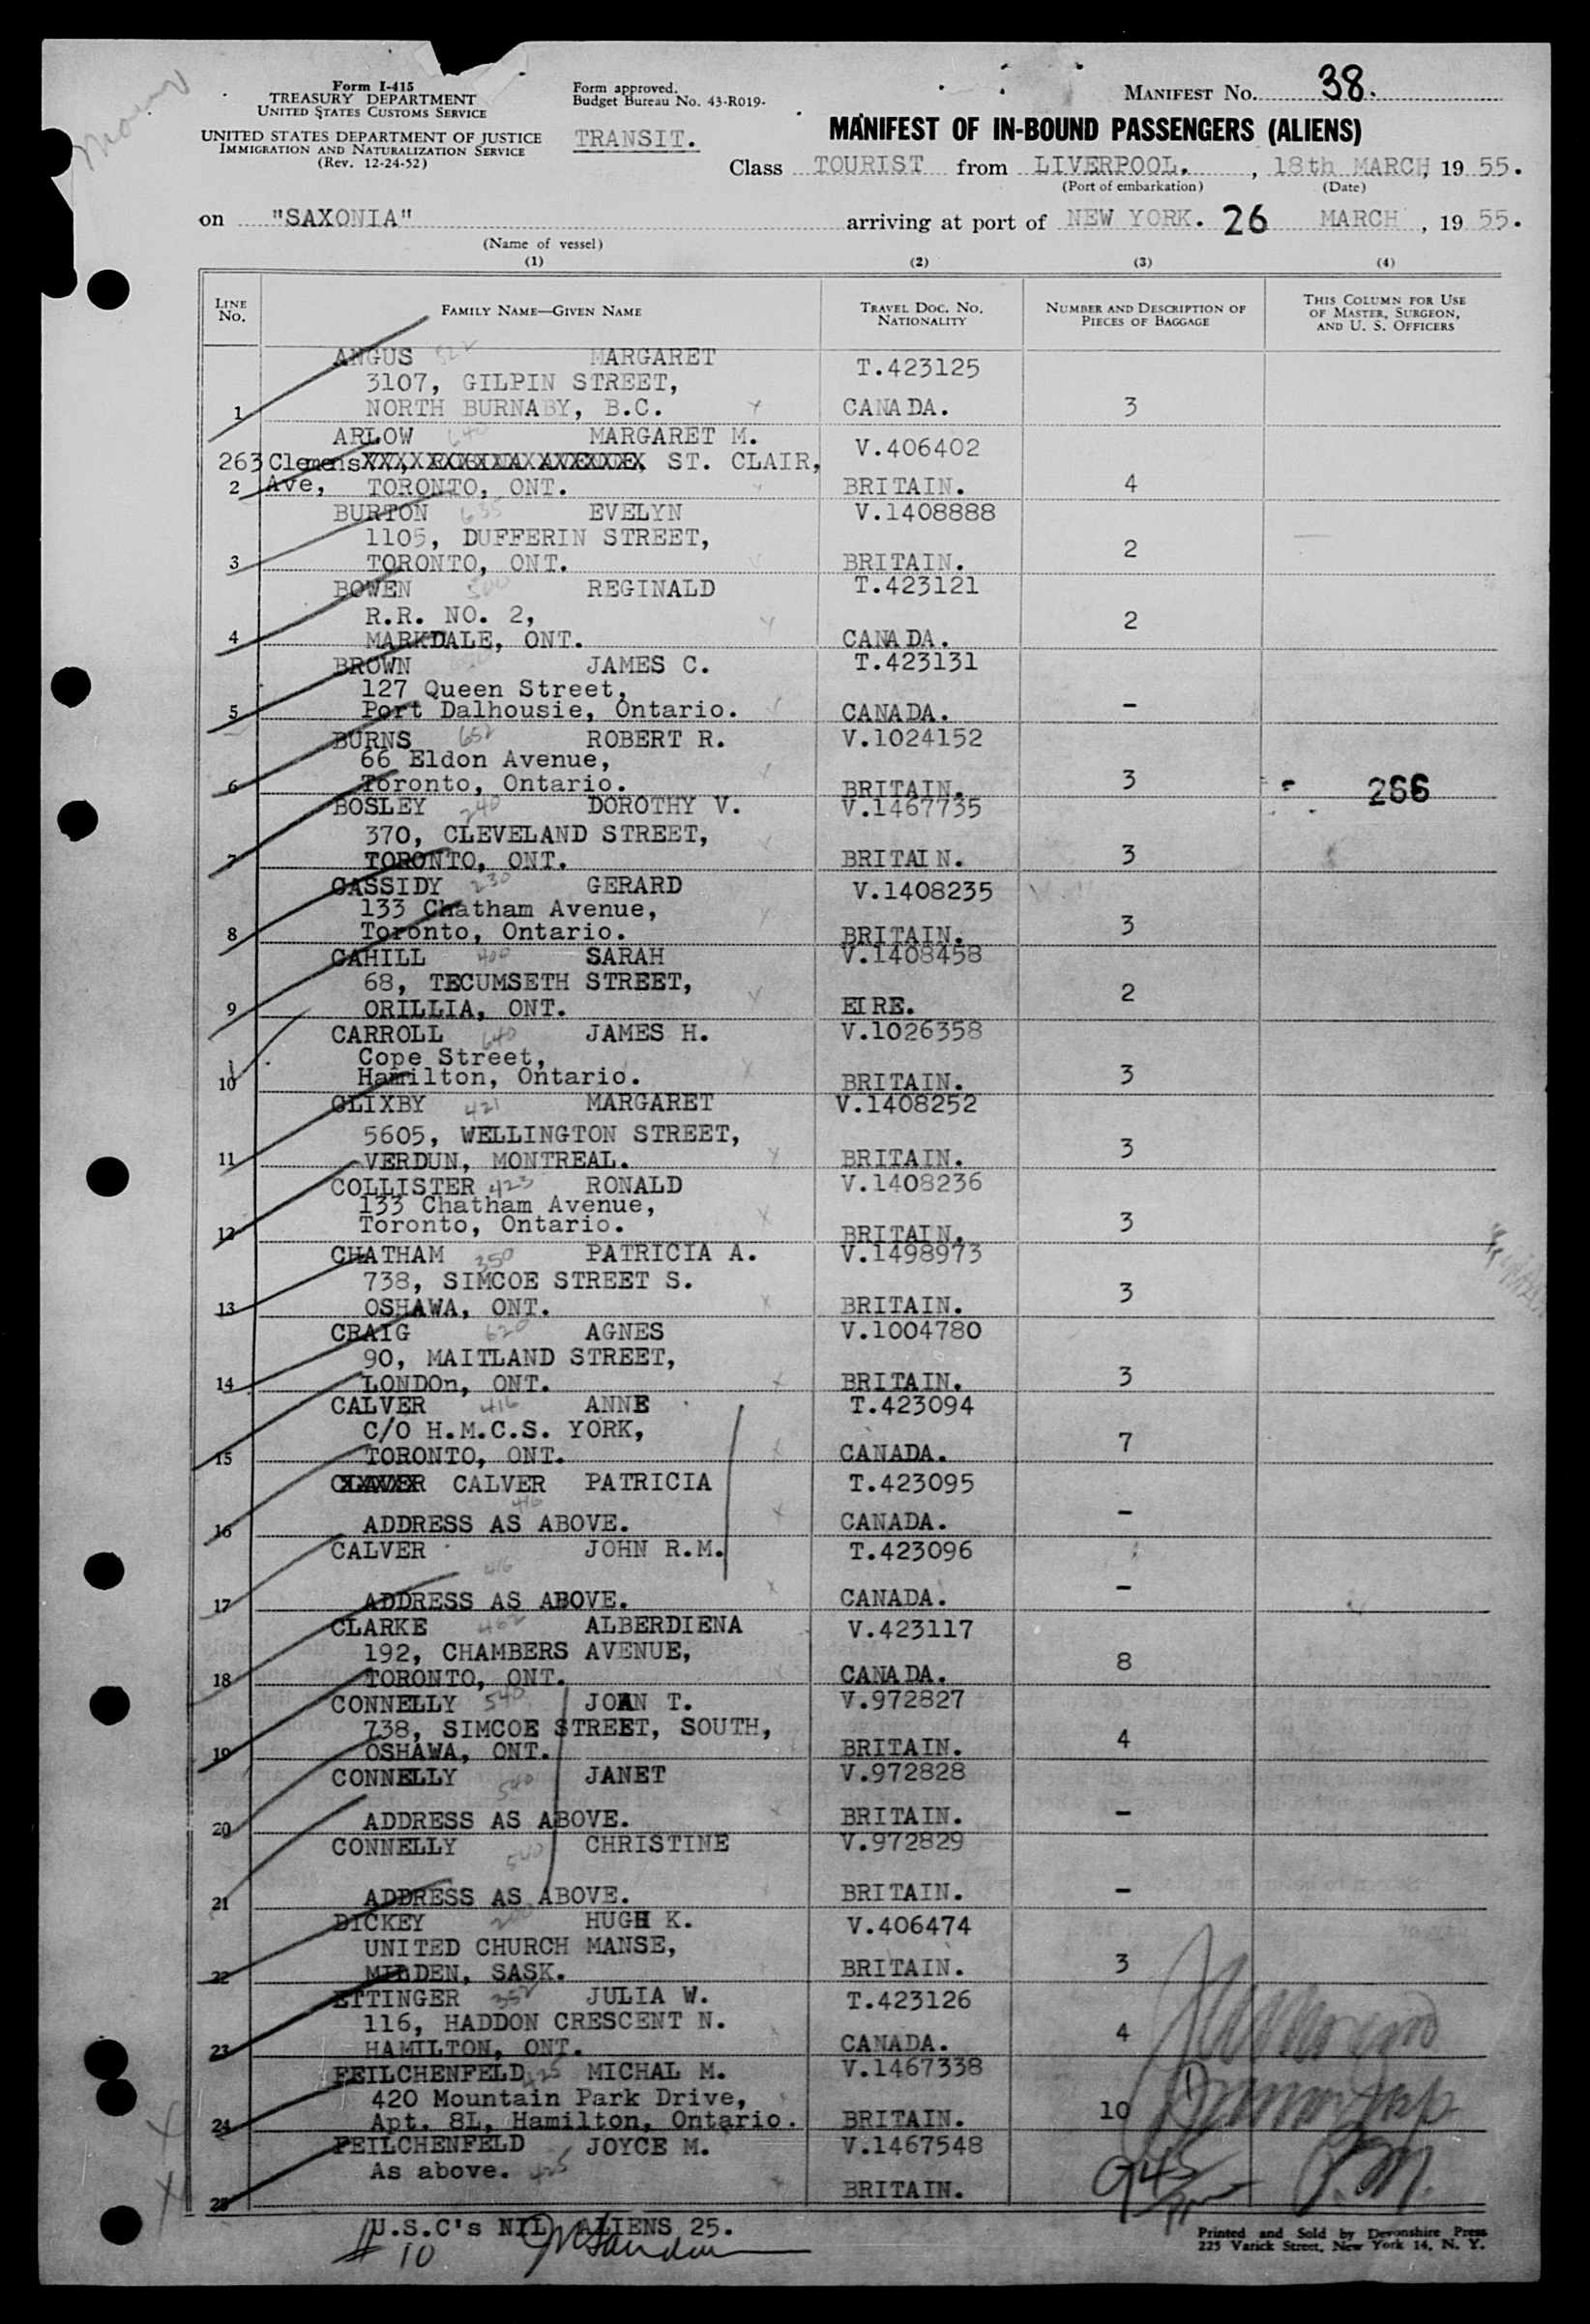 Form I-415
TREASURY DEPARTMENT
UNITED STATES CUSTOMS SERVICE
UNITED STATES DEPARTMENT OF JUSTICE
IMMIGRATION AND NATURALIZATION SERVICE
(Rev. 12-24-52)
Form approved.
Budget Bureau No. 43-R019.
TRANSIT.
MANIFEST NO. 38.
MANIFEST OF IN-BOUND PASSENGERS (ALIENS)
Class TOURIST from LIVERPOOL. , 18th MARCH, 19 55.
(Port of embarkation) (Date)
on "SAXONIA" arriving at port of NEW YORK. 26 MARCH , 19 55.
(Name of vessel)
(1) (2) (3) (4)
LINE NO. FAMILY NAME—GIVEN NAME TRAVEL DOC. NO. NATIONALITY NUMBER AND DESCRIPTION OF PIECES OF BAGGAGE THIS COLUMN FOR USE OF MASTER, SURGEON, AND U. S. OFFICERS
ANGUS 522 MARGARET T.423125
3107, GILPIN STREET,
1 NORTH BURNABY, B.C. CANADA. 3
ARLOW 640 MARGARET M. V.406402
263 Clemens ST. CLAIR,
2 Ave, TORONTO, ONT. BRITAIN. 4
BURTON 635 EVELYN V.1408888
1105, DUFFERIN STREET,
3 TORONTO, ONT. BRITAIN. 2
BOWEN 500 REGINALD T.423121
R.R. NO. 2,
4 MARKDALE, ONT. CANADA. 2
BROWN JAMES C. T.423131
127 Queen Street,
5 Port Dalhousie, Ontario. CANADA. -
BURNS 652 ROBERT R. V.1024152
66 Eldon Avenue,
6 Toronto, Ontario. BRITAIN. 3 266
BOSLEY 240 DOROTHY V. V.1467735
370, CLEVELAND STREET,
7 TORONTO, ONT. BRITAIN. 3
CASSIDY 230 GERARD V.1408235
133 Chatham Avenue,
8 Toronto, Ontario. BRITAIN. 3
CAHILL 400 SARAH V.1408458
68, TECUMSETH STREET,
9 ORILLIA, ONT. EIRE. 2
CARROLL 640 JAMES H. V.1026358
Cope Street,
10 Hamilton, Ontario. BRITAIN. 3
CLIXBY 421 MARGARET V.1408252
5605, WELLINGTON STREET,
11 VERDUN, MONTREAL. BRITAIN. 3
COLLISTER 423 RONALD V.1408236
133 Chatham Avenue,
12 Toronto, Ontario. BRITAIN. 3
CHATHAM 350 PATRICIA A. V.1498973
738, SIMCOE STREET S.
13 OSHAWA, ONT. BRITAIN. 3
CRAIG 620 AGNES V.1004780
90, MAITLAND STREET,
14 LONDOn, ONT. BRITAIN. 3
CALVER 416 ANNE T.423094
C/O H.M.C.S. YORK,
15 TORONTO, ONT. CANADA. 7
CALVER PATRICIA T.423095
416
16 ADDRESS AS ABOVE. CANADA. -
CALVER JOHN R.M. T.423096
416
17 ADDRESS AS ABOVE. CANADA. -
CLARKE 462 ALBERDIENA V.423117
192, CHAMBERS AVENUE,
18 TORONTO, ONT. CANADA. 8
CONNELLY 540 JOAN T. V.972827
738, SIMCOE STREET, SOUTH,
19 OSHAWA, ONT. BRITAIN. 4
CONNELLY 540 JANET V.972828
20 ADDRESS AS ABOVE. BRITAIN. -
CONNELLY 540 CHRISTINE V.972829
21 ADDRESS AS ABOVE. BRITAIN. -
DICKEY 200 HUGH K. V.406474
UNITED CHURCH MANSE,
22 MILDEN, SASK. BRITAIN. 3
ETTINGER 352 JULIA W. T.423126
116, HADDON CRESCENT N.
23 HAMILTON, ONT. CANADA. 4
FEILCHENFELD 425 MICHAL M. V.1467338
420 Mountain Park Drive,
24 Apt. 8L, Hamilton, Ontario. BRITAIN. 10
FEILCHENFELD JOYCE M. V.1467548
As above. 425
25 BRITAIN. 945 P.M.
U.S.C's NIL ALIENS 25.
# 10
Printed and Sold by Devonshire Press
225 Varick Street, New York 14, N. Y.